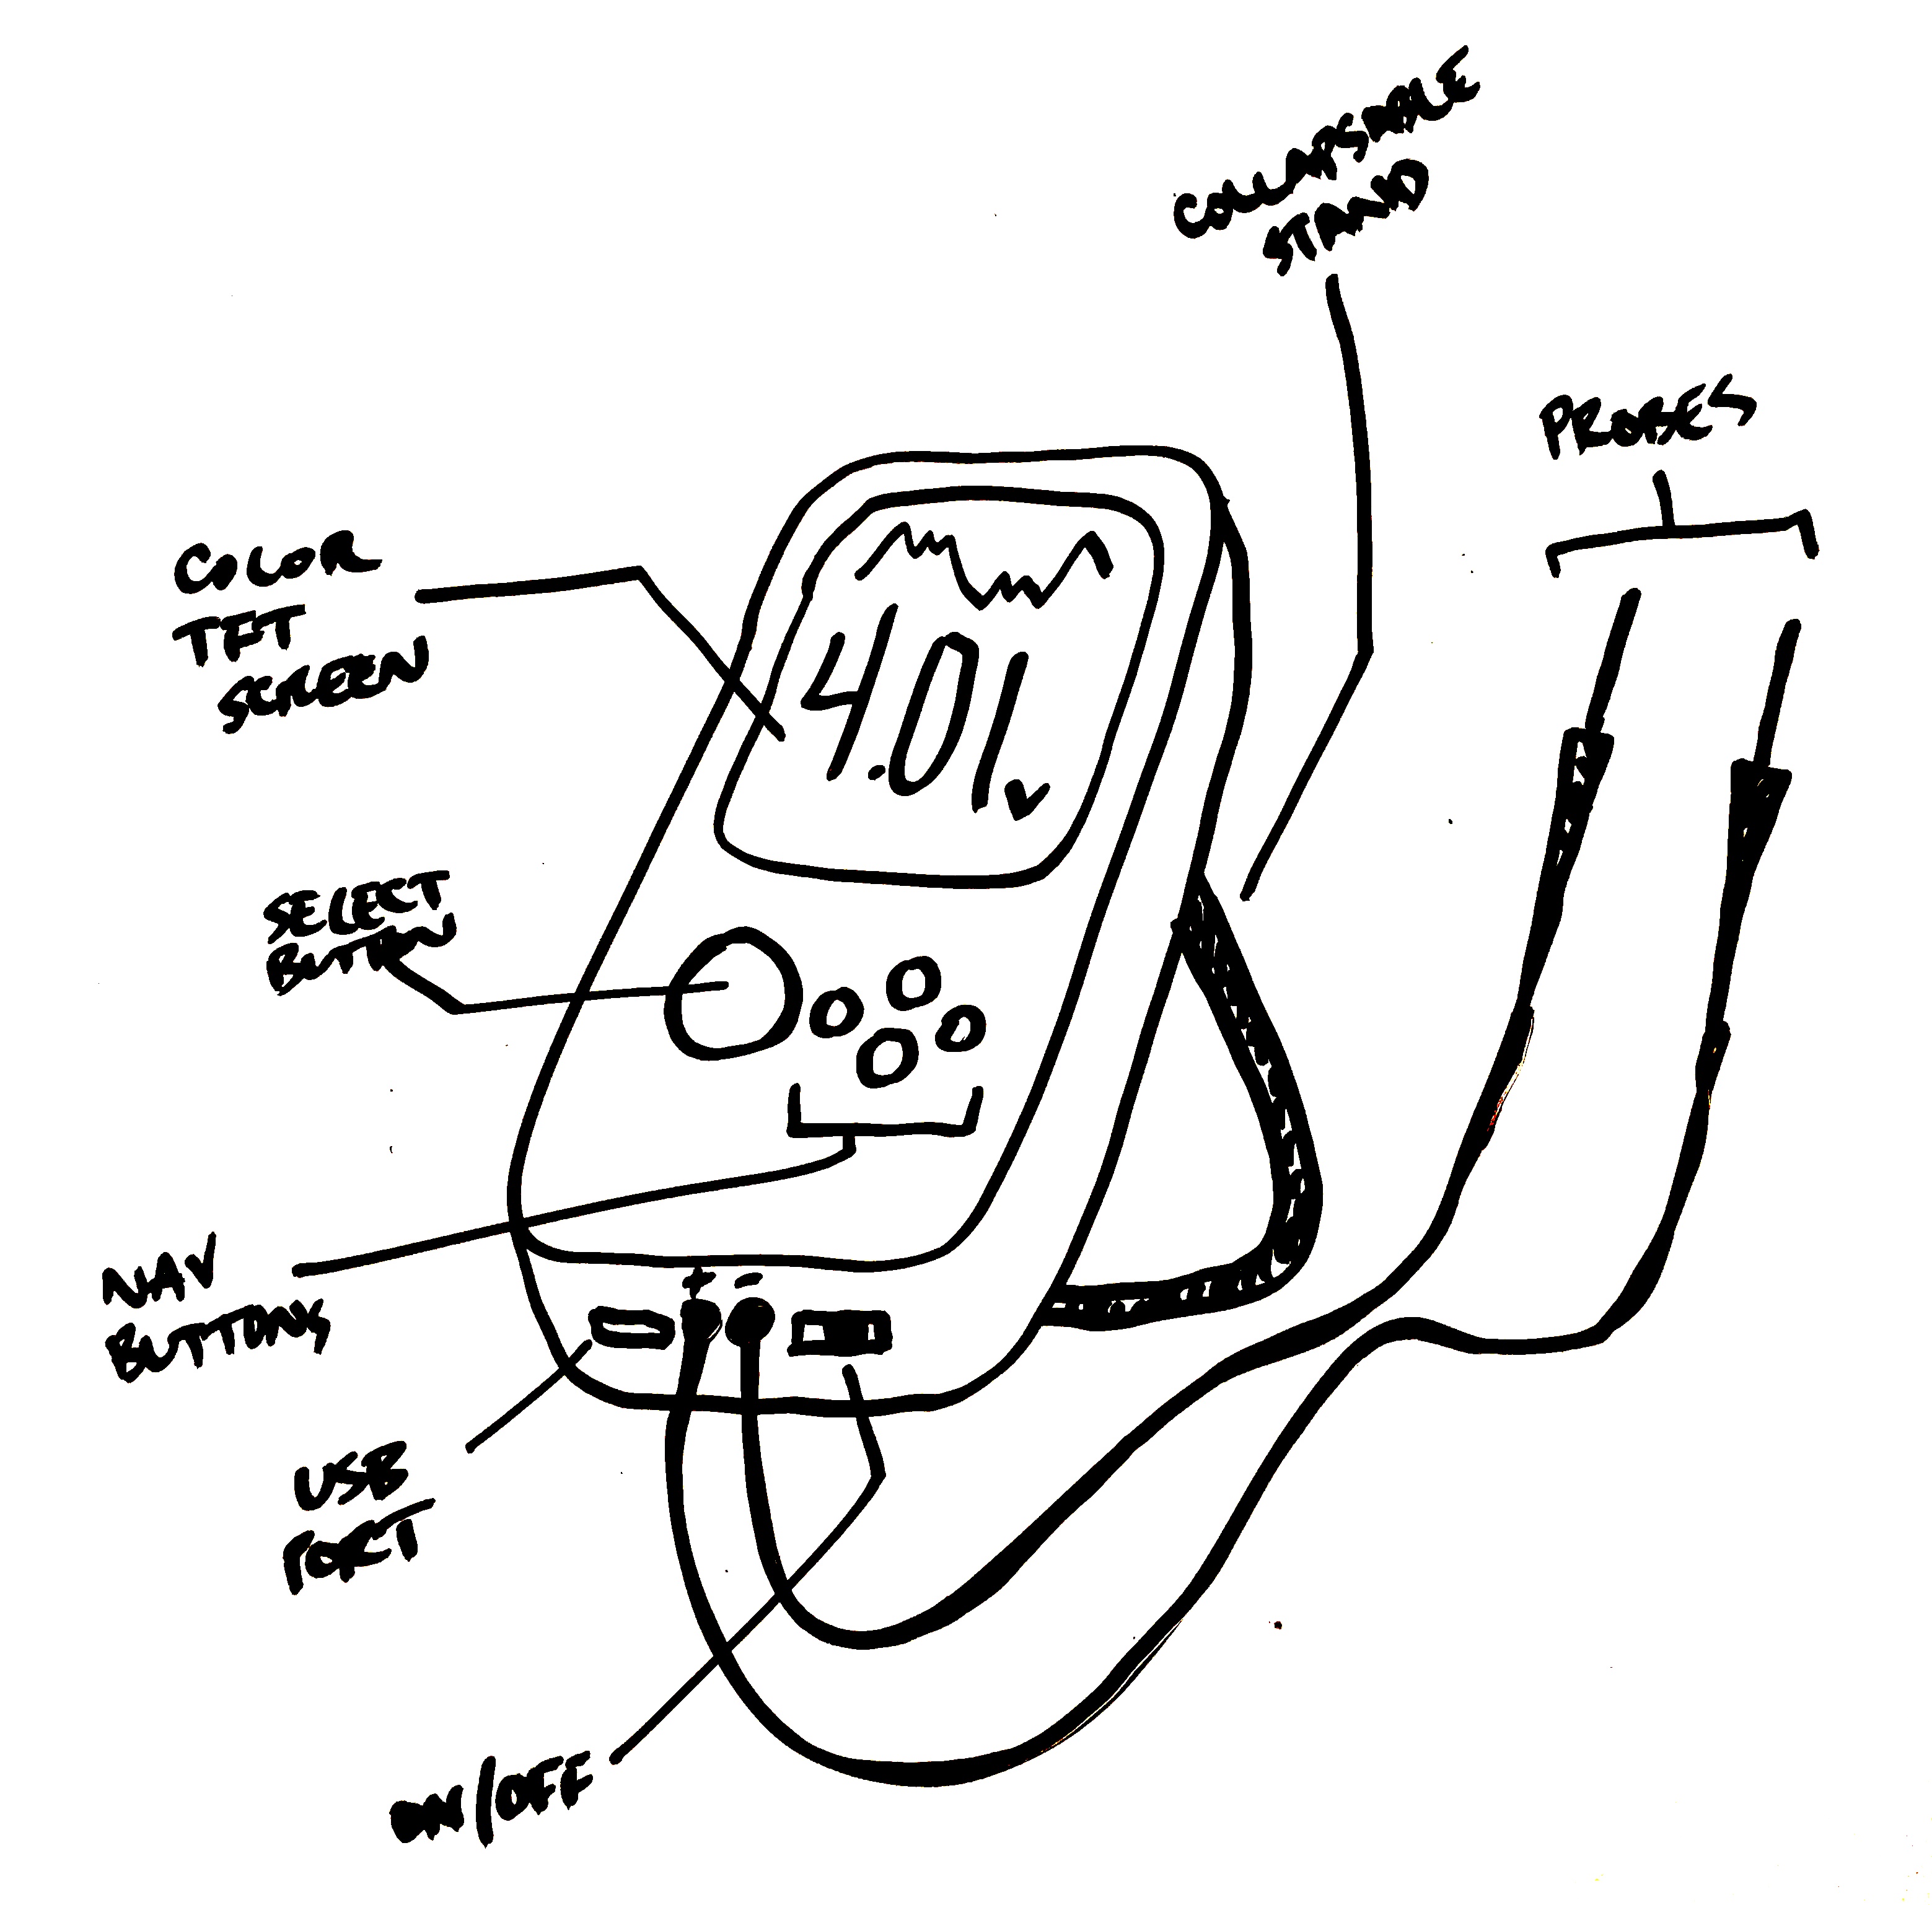 COLLAPSABLE
STAND
PROBES
COLOR
TFT
SCREEN
4.01V
SELECT
BUTTON
NAV
BUTTONS
+ -
USB
PORT
ON/OFF